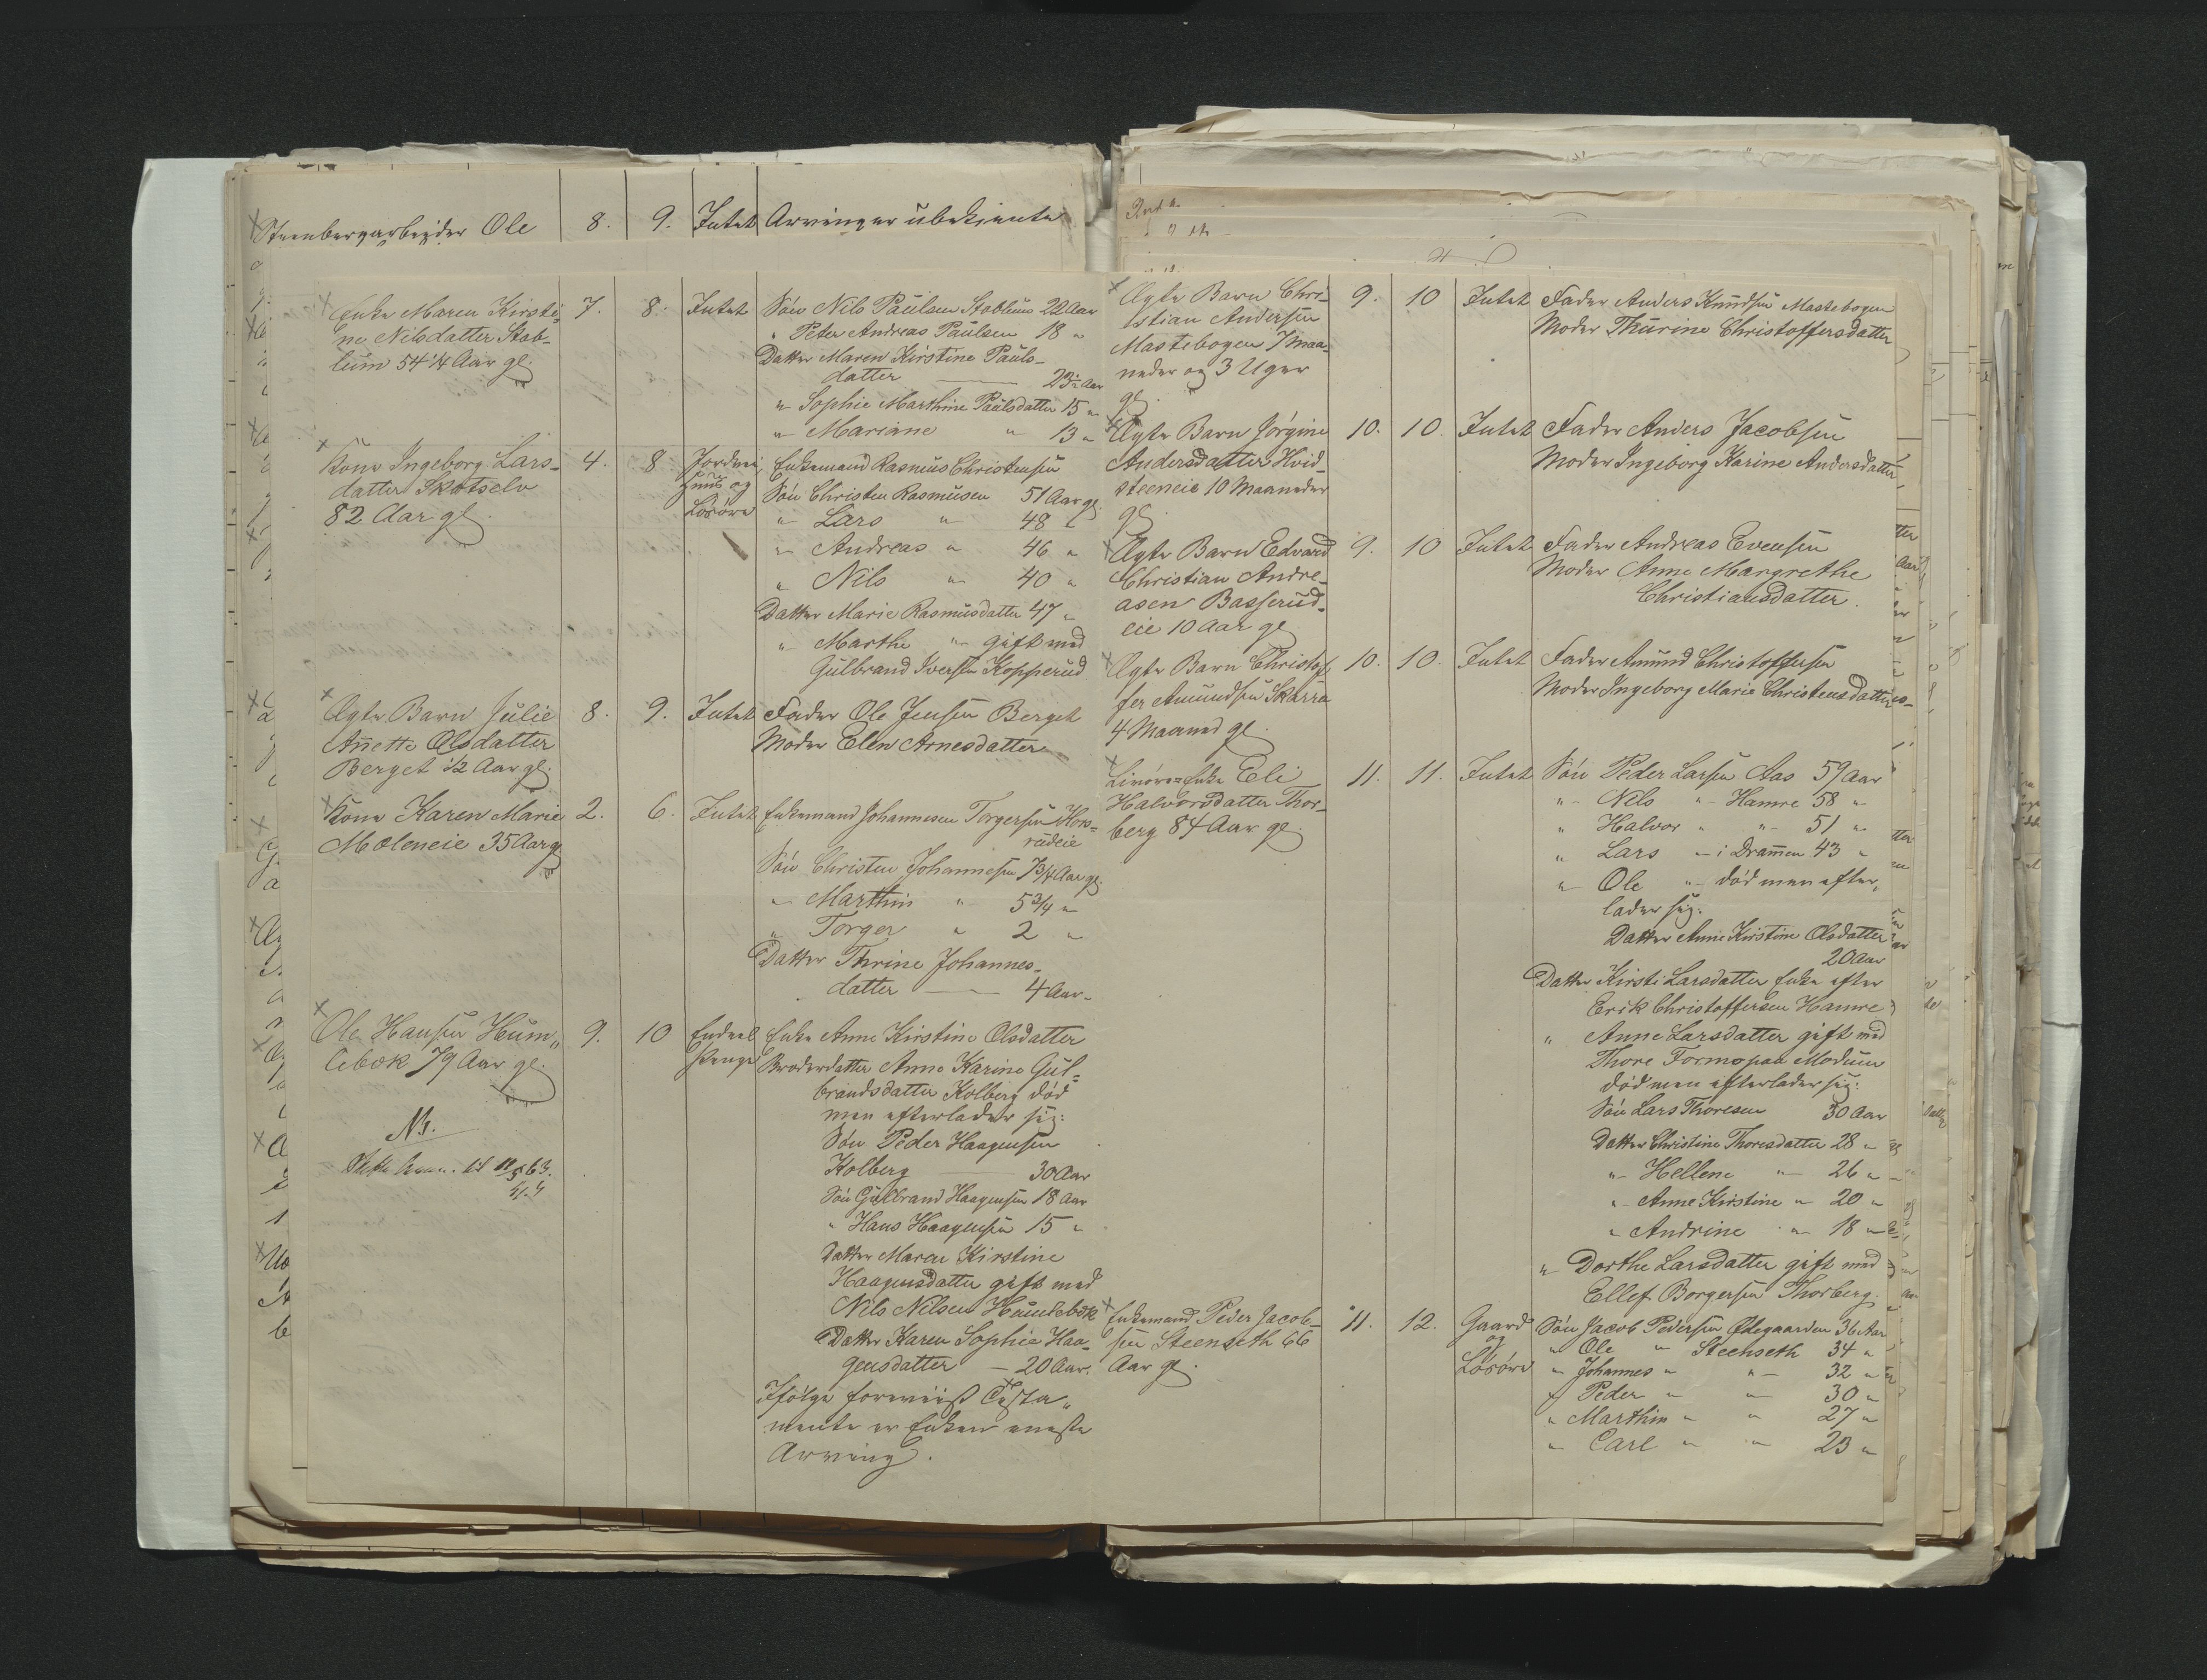 Steenbergarbeider Ole 8. 9. Intet Arvinger übekjente
Enke Maren Kirsti- 7. 8. Intet Søn Nils Paulsen Stablum 22 Aar
ne Nilsdatter Stab- " Peter Andreas Paulsen 18 "
lum 54 1/4 Aar gl. Datter Maren Kirstine Pauls-
datter — 23 1/2 Aar
" Sophie Marthine Paulsdatter 15 "
" Mariane " 13 "
Kone Ingeborg Lars- 4. 8 Jordvei, Enkemand Rasmus Christensen
datter Skotselv Huus og Søn Christen Rasmusen 51 Aar gl.
82 Aar gl. Løsøre " Lars " 48 "
" Andreas " 46 "
" Nils " 40 "
Datter Marie Rasmusdatter 47 "
" Marthe " gift med
Gulbrand Iversen Kopperud
Ægte Barn Julie 8. 9. Intet Fader Ole Jensen Berget
Anette Olsdatter Moder Elen Arnesdatter
Berget 1/2 Aar gl.
Kone Karen Marie 2. 6. Intet Enkemand Johannesen Torgersen Hors-
Moleneie 35 Aar gl rudeie
Søn Christen Johannesen 7 3/4 Aar gl.
" Marthin " 5 3/4 "
" Torger " 2 "
Datter Thrine Johannes-
datter — 4 Aar.
Ole Hansen Hum- 9. 10 Endeel Enke Anne Kirstine Olsdatter
lebæk 79 Aar gl. Penge Broderdatter Anne Karine Gul-
brandsdatter Kolberg død
men efterlader sig:
Nr. Søn Peder Haagensen
Kolberg — 30 Aar
Søn Gulbrand Haagensen 18 Aar
" Hans Haagensen 15 "
Datter Maren Kirstine
Haagensdatter gift med
Nils Nilsen Humlebæk
Datter Karen Sophie Haa-
gensdatter — 20 Aar.
Ifølge foreviist Testa-
mente er Enken eneste
Arving.
Ægte Barn Chri- 9. 10 Intet Fader Anders Knudsen Mastebogen
stian Andersen Moder Thurine Christoffersdatter
Mastebogen 7 Maa-
neder og 3 Uger
gl.
Ægte Barn Jørgine 10. 10. Intet Fader Anders Jacobsen
Andersdatter Hvid- Moder Ingeborg Karine Andersdatter
steeneie 10 Maaneder
gl.
Ægte Barn Edvard 9. 10 Intet Fader Andreas Evensen
Christian Andre- Moder Anne Margrethe
asen Basserud- Christiansdatter.
eie 10 Aar gl
Ægte Barn Christof- 10. 10. Intet Fader Amund Christoffersen
fer Amundsen Skarra Moder Ingeborg Marie Christensdatter
4 Maaned gl.
Enke Eli 11. 11. Intet Søn Peder Larsen Aas 59 Aar
Halvorsdatter Thor- " Nils " Hamre 58 "
berg 84 Aar gl. " Halvor " " 51 "
" Lars " i Dramen 43 "
" Ole " død men efter-
lader sig:
Datter Anne Kirstine Olsdatter
20 Aar
Datter Kirsti Larsdatter Enke efter
Erik Christoffersen Hamre
" Anne Larsdatter gift med
Thore Formo paa Modum
død men efterlader sig:
Søn Lars Thoresen 30 Aar
Datter Christine Thoresdatter 28 "
" Hellene " 26 "
" Anne Kirstine " 20 "
" Andrine " 18 "
" Dorthe Larsdatter gift med
Ellef Borgersen Thorberg.
Enkemand Peder Jacob- 11. 12. Gaard Søn Jacob Pedersen Ødegaarden 36 Aar
sen Steenseth 66 og " Ole " Steenseth 34 "
Aar gl. Løsøre " Johannes " " 32 "
" Peder " " 30 "
" Marthin " " 27 "
" Carl " " 23 "